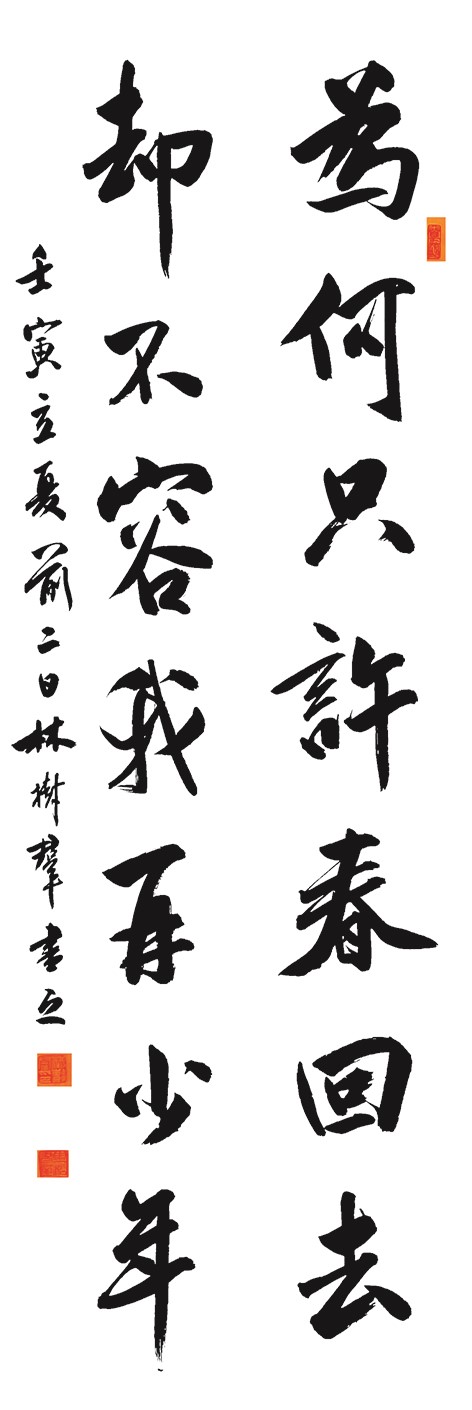 為何只許春回去
却不容我再少年
壬寅立夏前二日林樹群書之